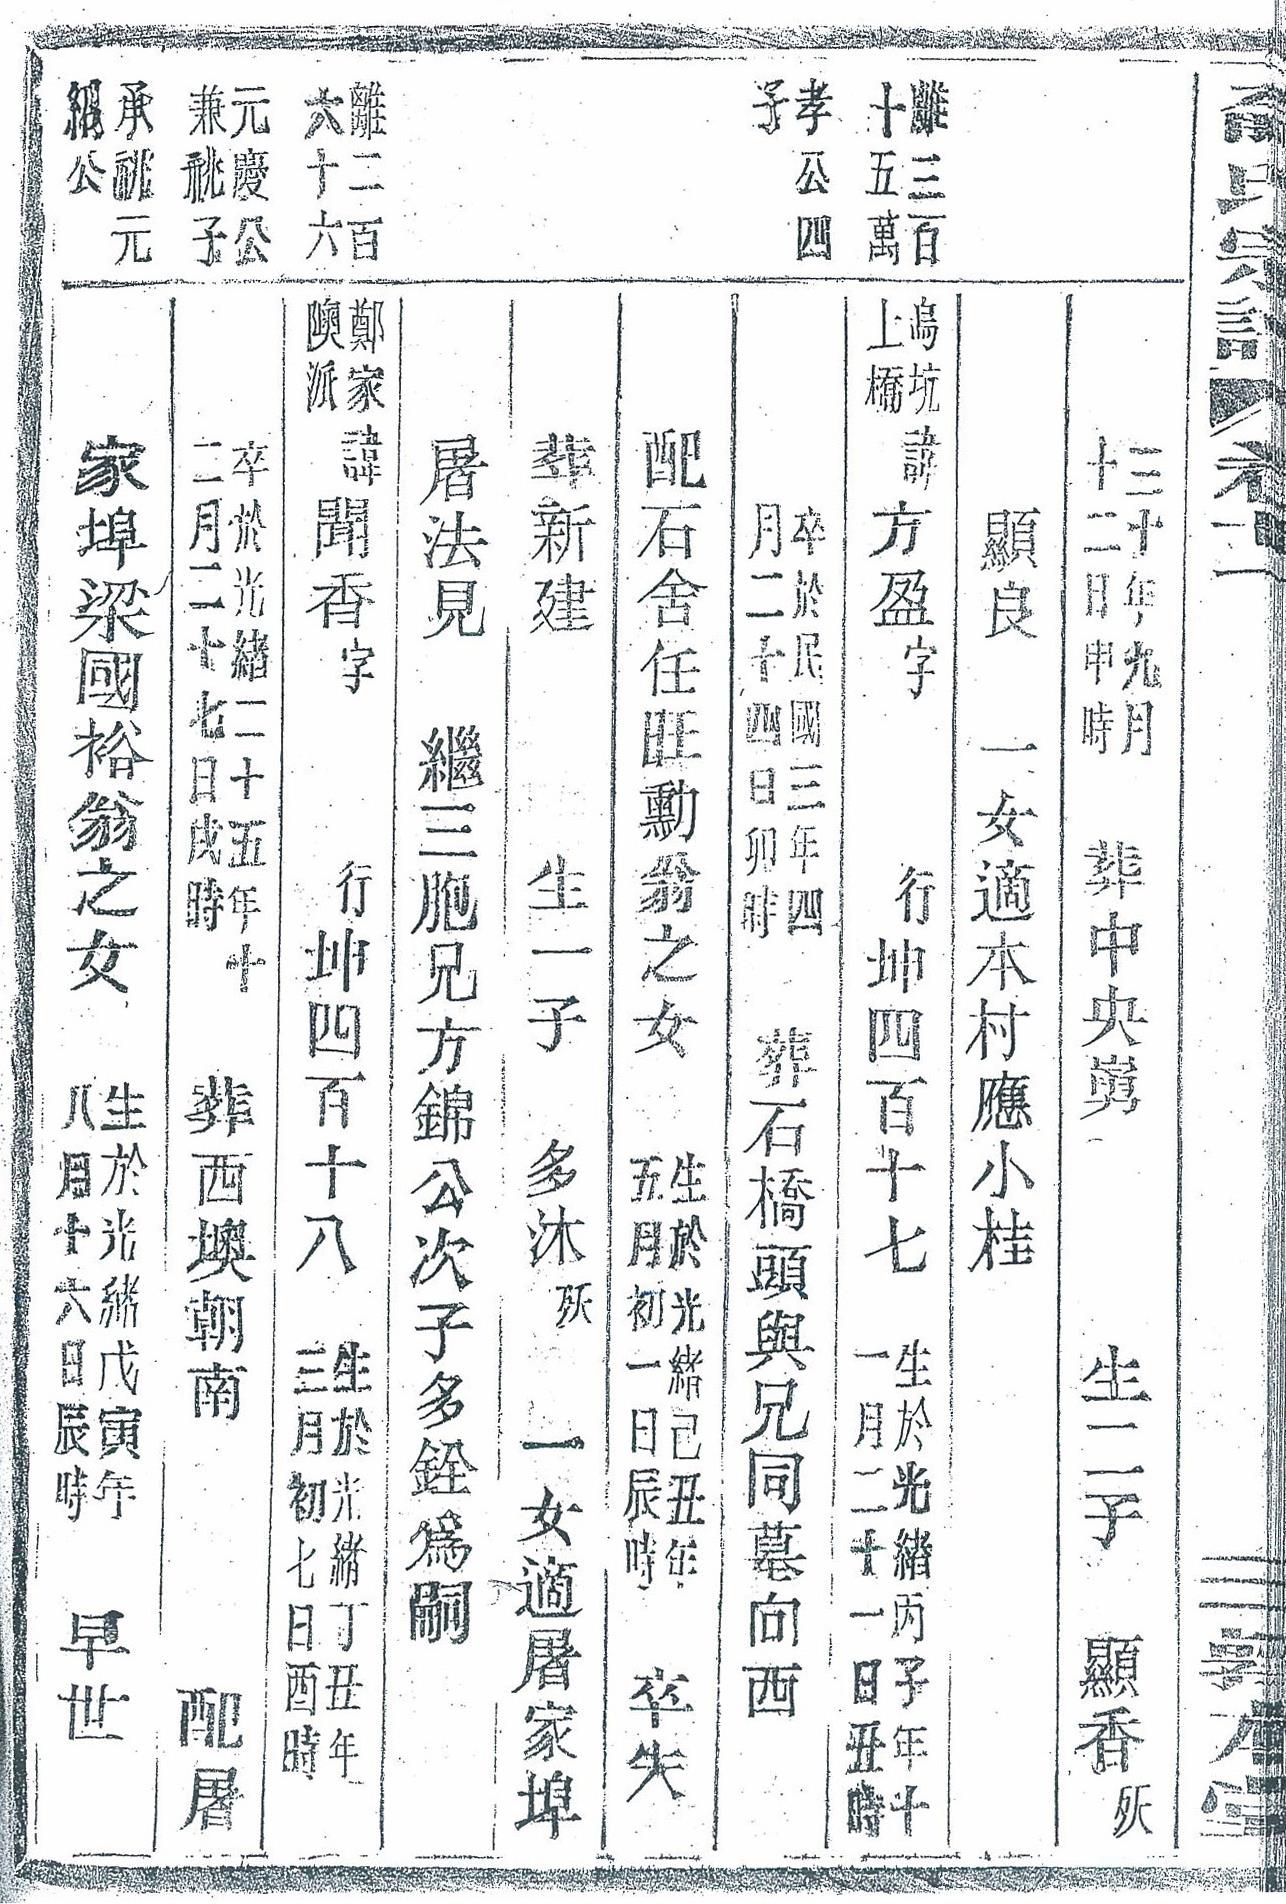 三十年九月
十二日申時
葬中央嶴
生二子
顯香
殀
顯良
一女適本村應小桂
離三百
十五萬
孝公四
子
烏坑
上橋
諱
方盈
字
行
坤四百十七
生於光緒丙子年十
一月二十一日丑時
卒於民國三年四
月二十四日卯時
葬石橋頭與兄同墓向西
配石舍任旺勳翁之女
生於光緒己丑年
五月初一日辰時
卒失
葬新建
生一子
多沐
殀
一女適屠家埠
屠法見
繼三胞兄方錦公次子多銓為嗣
離二百
六十六
元慶公
兼祧子
鄭家
隩派
諱
聞香
字
行
坤四百十八
生於光緒丁丑年
三月初七日酉時
卒於光緒二十五年十
二月二十七日戌時
葬西墺朝南
配屠
承祧元
公
家埠梁國裕翁之女
生於光緒戊寅年
八月十六日辰時
早世